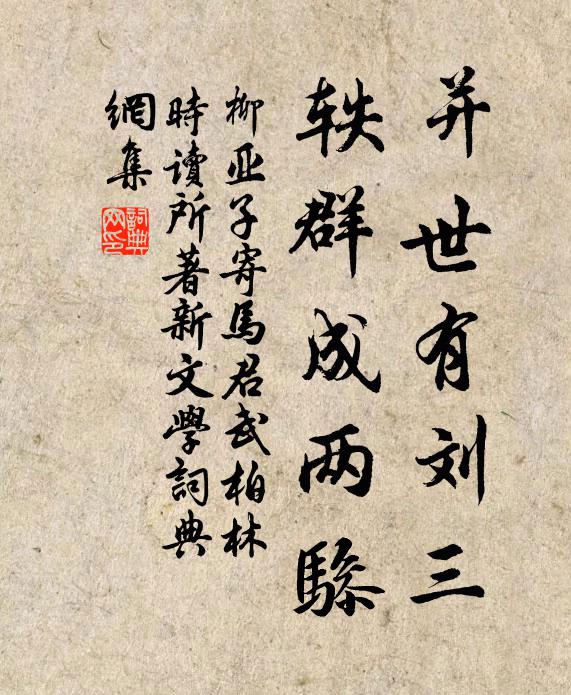 并世有刘三
轶群成两骖
柳亚子寄馬君武柏林
時讀所著新文學詞典
網集
詞典网印